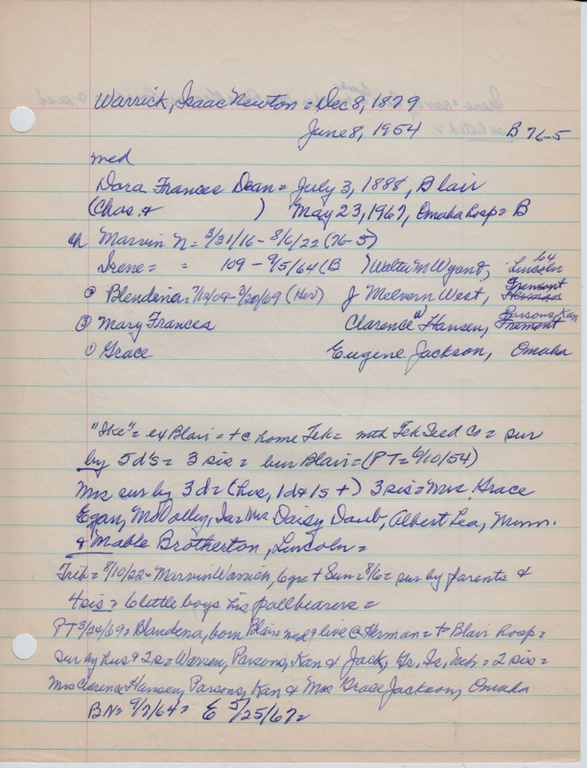 Warrick, Isaac Newton = Dec 8, 1879
June 8, 1954 B 76-5
med
Dora Frances Dean = July 3, 1888, Blair
(Chas. & ) May 23, 1967, Omaha hosp = B
ch Marvin N = 3/31/16 - 8/6/22 (76-5)
Irene = = 109 - 9/5/64 (B ) Walter M Wygant, Lincoln 64
② Blendena = 7/12/09 - 3/20/69 (Her) J Melvern West, Fremont
③ Mary Frances Clarence W Hansen, Fremont Parsons, Kan
① Grace Eugene Jackson, Omaha
"Ike" = ex Blair = + c home Tek = with Tek Seed Co = sur
by 5 d's = 3 sis = bur Blair = (PT = 6/10/54)
Mrs sur by 3 d = (hus, 1d & 1s +) 3 sis = Mrs. Grace
Egan, McVolley, Ia; Mrs Daisy Daub, Albert Lea, Minn.
& Mable Brotherton, Lincoln =
Trib = 8/10/22 = Marvin Warrick, 6 yr + Sun = 8/6 = sur by parents &
4 sis = 6 little boys his pallbearers =
PT 3/24/69 = Blandena, born Blair = med & live @ Herman = + Blair hosp =
sur by hus & 2 s = Warren, Parsons, Kan & Jack, Gr. Is. Neb = 2 sis =
Mrs Clarence Hansen, Parsons, Kan & Mrs Grace Jackson, Omaha
BN = 9/7/64 = E 5/25/67 =